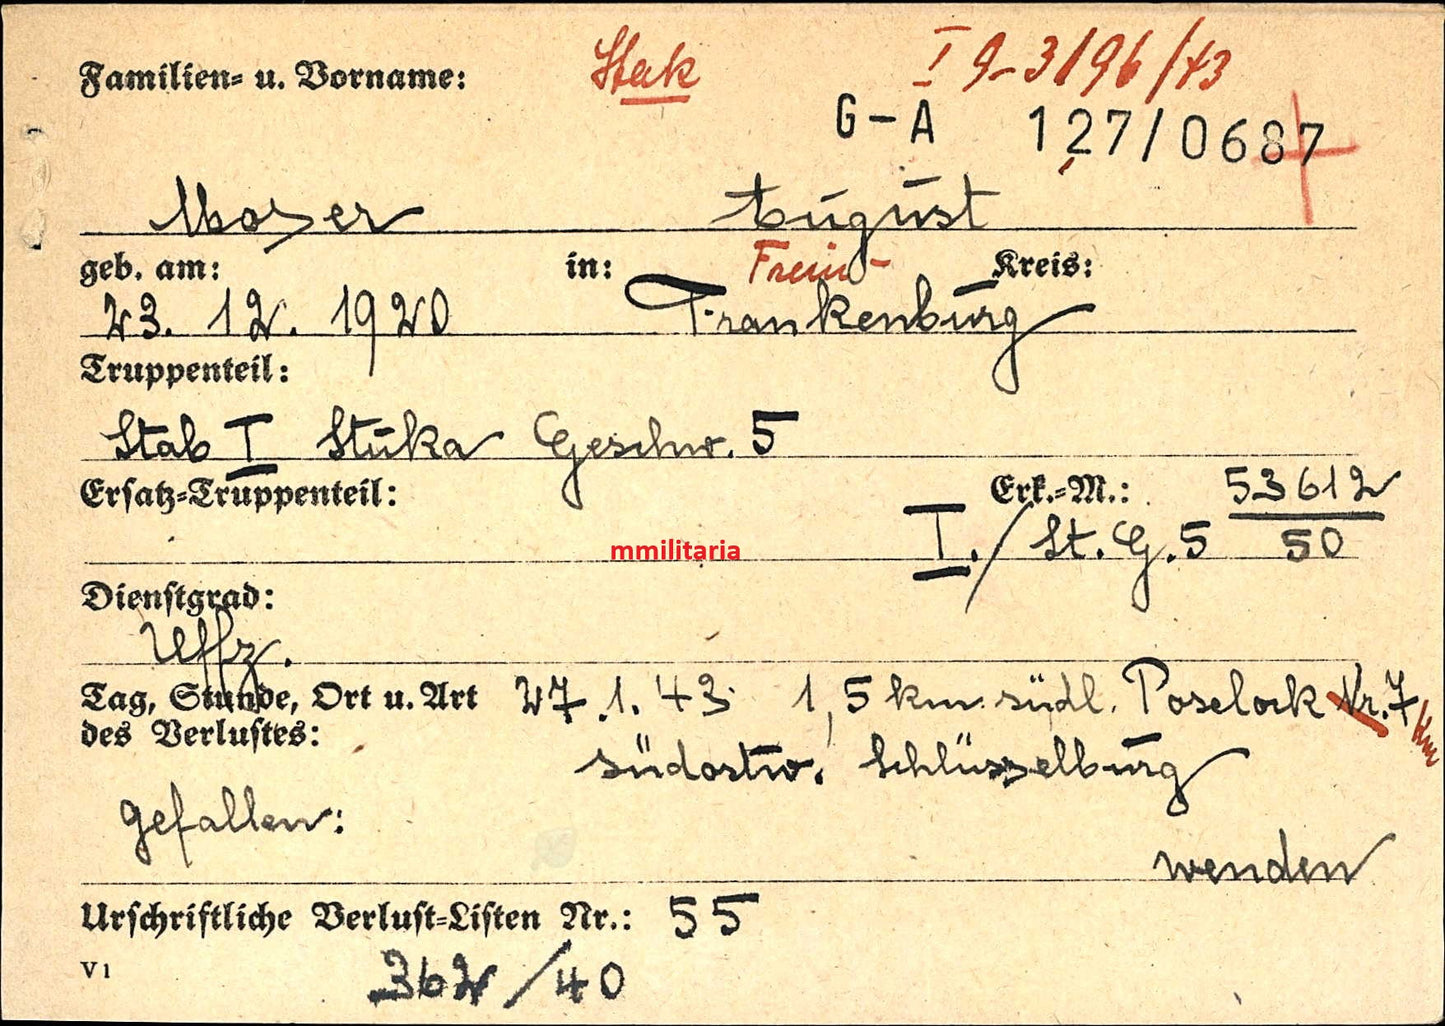 Familien- u. Vorname: Stek I 9-3/96/43
G-A 127/0687
Moser August
geb. am: in: Kreis:
23. 12. 1920 Frankenburg
Truppenteil:
Stab I Stuka Geschw. 5
Ersatz-Truppenteil: Erk.-M.: 53612
I./St.G.5 50
mmilitaria
Dienstgrad:
Uffz.
Tag, Stunde, Ort u. Art 27.1.43 1,5 km südl. Poselock Nr. 7 km
des Verlustes: südostw. Schlüsselburg
gefallen:
wenden
Urschriftliche Verlust-Listen Nr.: 55
V1 362/40